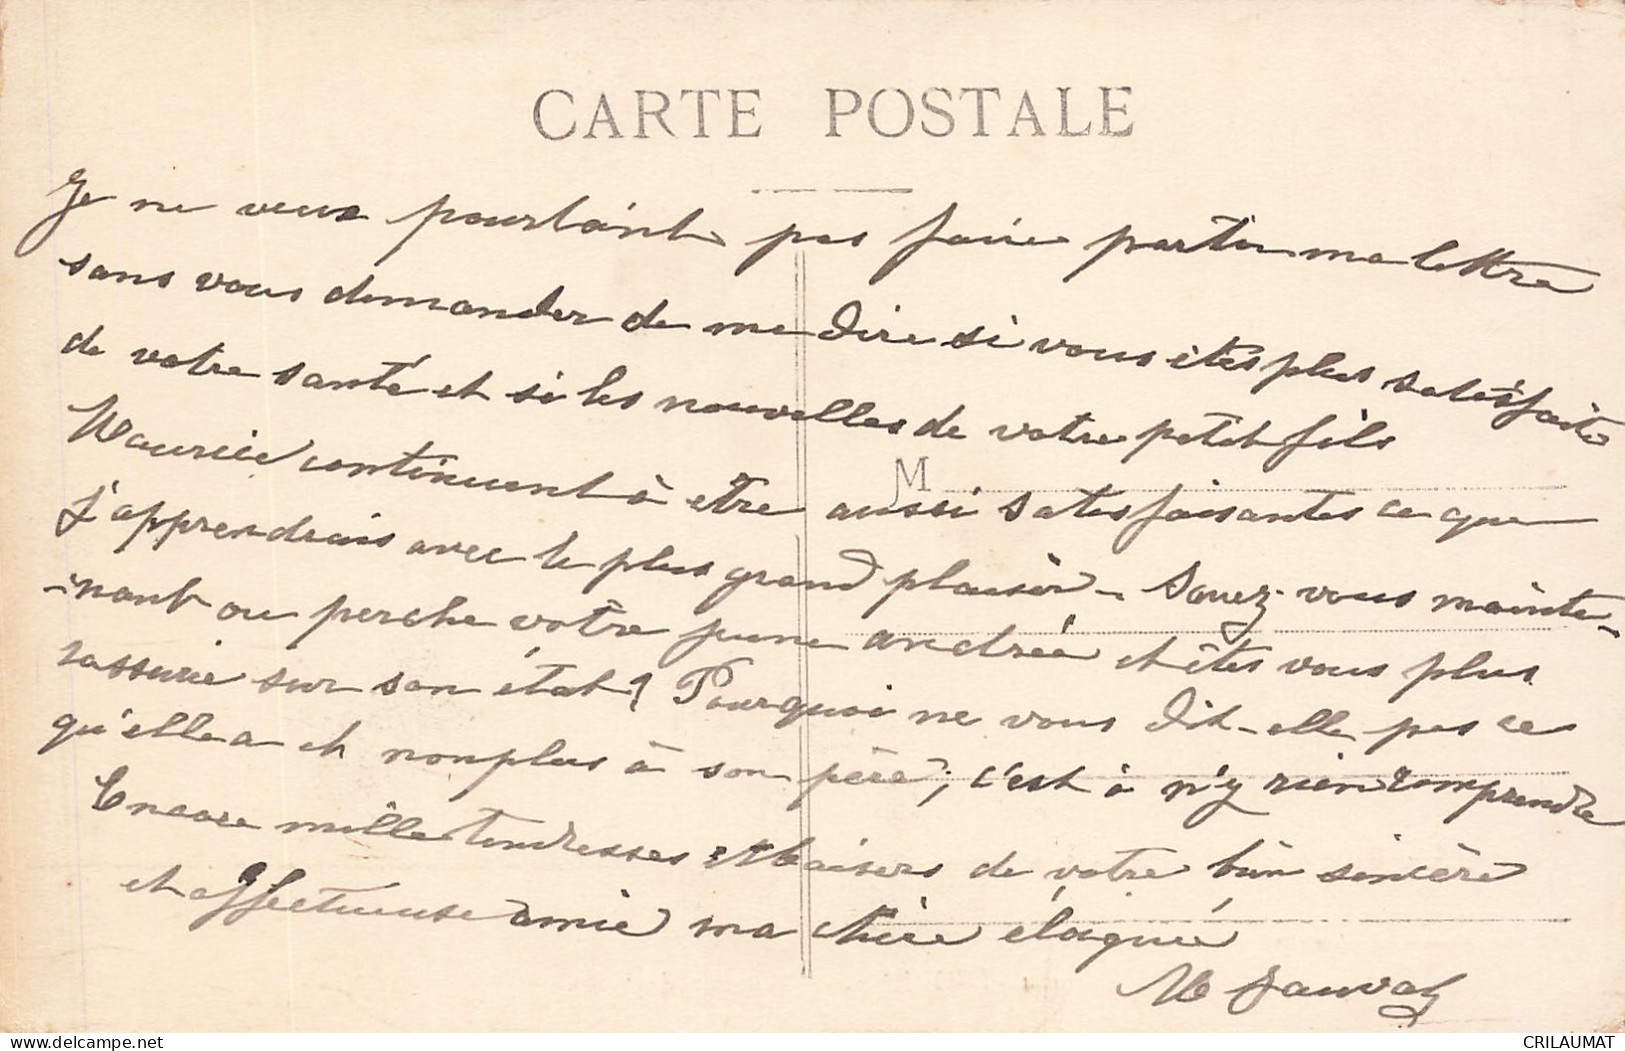 CARTE POSTALE
Je ne veux pourtant pas faire partir ma lettre
sans vous demander de me dire si vous êtes plus satisfaite
de votre santé et si les nouvelles de votre petit fils
Maurice continuent à être aussi satisfaisantes ce que
M
j'apprendrais avec le plus grand plaisir - Savez-vous mainte-
-nant ou perche votre jeune andrée et êtes vous plus
rassurée sur son état? Pourquoi ne vous dit-elle pas ce
qu'elle a et non plus à son père; c'est à n'y rien comprendre
Encore mille tendresses et baisers de votre bien sincère
et affectueuse amie ma chère éloignée
M
delcampe.net
CRILAUMAT